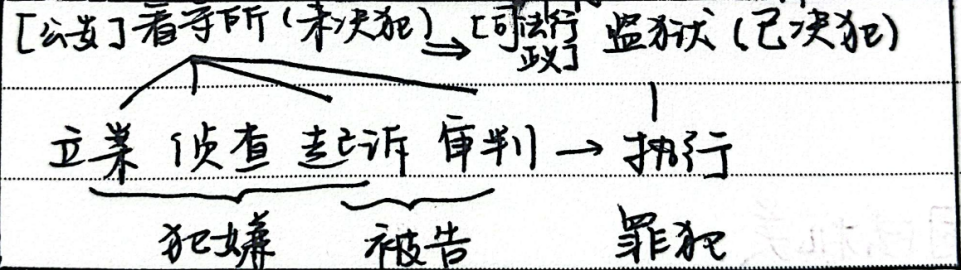 [公安]看守所(未决犯)⇒[司法行政]监狱(已决犯)
立案 侦查 起诉 审判→执行
犯嫌 被告 罪犯